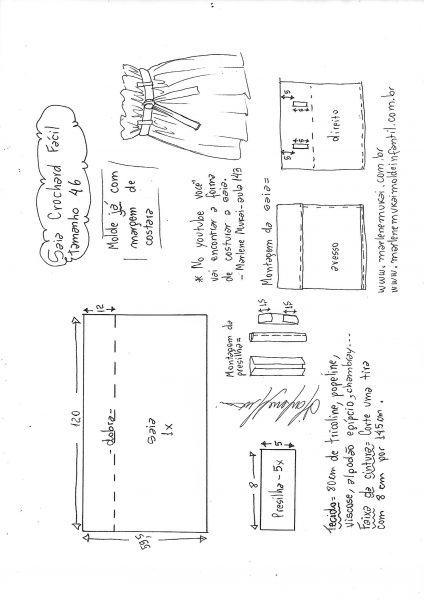 Saia Crochard Fácil
Tamanho 46
Molde já com
margem de
costura
* No youtube você
vai encontrar a forma
de costurar a saia.
- Marlene Mukai - aula 143
Montagem da saia=
5
5
direito
avesso
www.marlenemukai.com.br
www.marlenemukaimoldeinfantil.com.br
12
120
- dobra -
saia
1x
59,5
Montagem da
presilha=
1,5
1,5
8
5
Presilha - 5x
Tecido= 80cm de tricoline, popeline,
viscose, algodão egípcio, chambray...
Faixa da cintura= Corte uma tira
com 8 cm por 145cm.